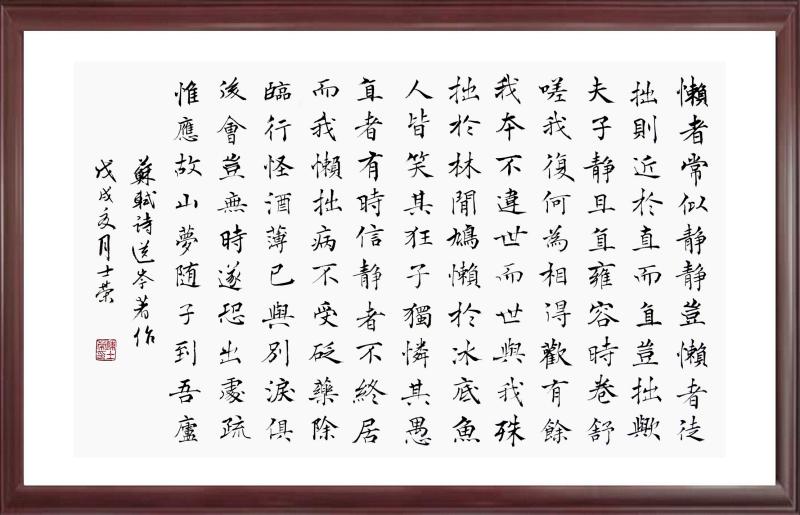 懶者常似静静豈懶者徒
拙則近於直而直豈拙歟
夫子静且直雍容時卷舒
嗟我復何為相得歡有餘
我本不違世而世與我殊
拙於林間鳩懶於冰底魚
人皆笑其狂子獨憐其愚
直者有時信静者不終居
而我懶拙病不受砭藥除
臨行怪酒薄已與別淚俱
後會豈無時遂恐出處疏
惟應故山夢随子到吾廬
蘇軾詩送岑著作
戊戌月士荣